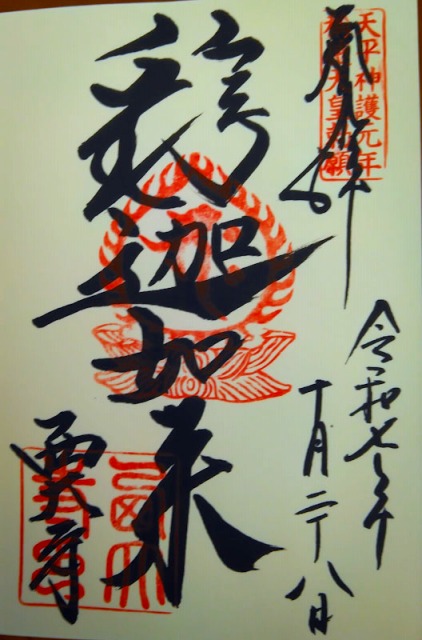 奉拝
天平神護元年
称徳天皇勅願
令和七年
十月二十八日
釈迦如来
西大寺